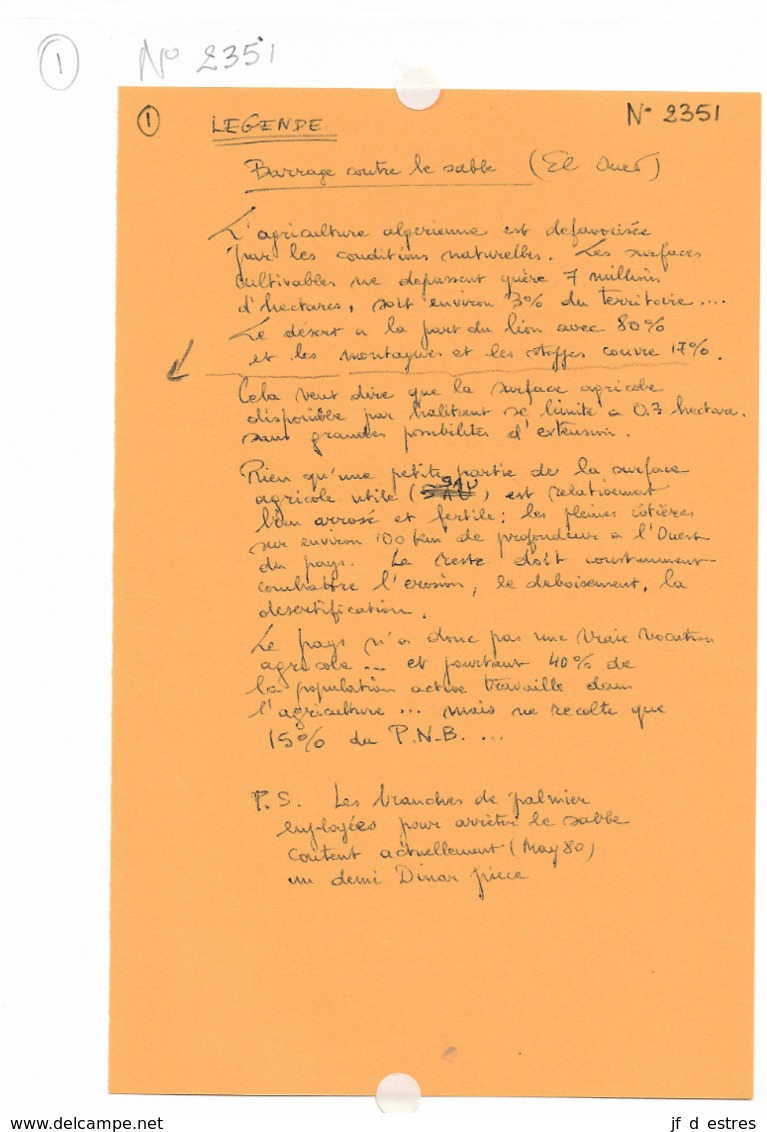 1 N° 2351
1 LEGENDE N° 2351
Barrage contre le sable (El Oued)
L'agriculture algérienne est defavorisée
par les conditions naturelles. Les surfaces
cultivables ne depassent guère 7 millions
d'hectares, soit environ 3% du territoire ....
Le désert a la part du lion avec 80%
et les montagnes et les steppes couvre 17%.
Cela veut dire que la surface agricole
disponible par habitant se limite a 0.3 hectare.
sans grandes possibilités d'extension.
Rien qu'une petite partie de la surface
agricole utile (SAU) est relativement
bien arrosé et fertile: les pleines côtières
sur environ 100 km de profondeur a l'Ouest
du pays. Le reste doit constamment
combattre l'erosion, le deboisement, la
desertification.
Le pays n'a donc pas une vraie vocation
agricole ... et pourtant 40% de
la population active travaille dans
l'agriculture ... mais ne recolte que
15% du P.N.B. ...
P.S. Les branches de palmier
employées pour arrêter le sable
coutent actuellement (May 80)
un demi Dinar piece
www.delcampe.net
jf d estres